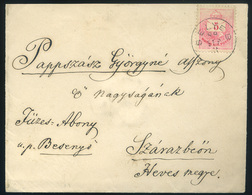 Pappszász Györgyné asszony
Ő Nagyságának
Füzes-Abony
u.p. Besenyő
Szarazbeön
Heves megye.